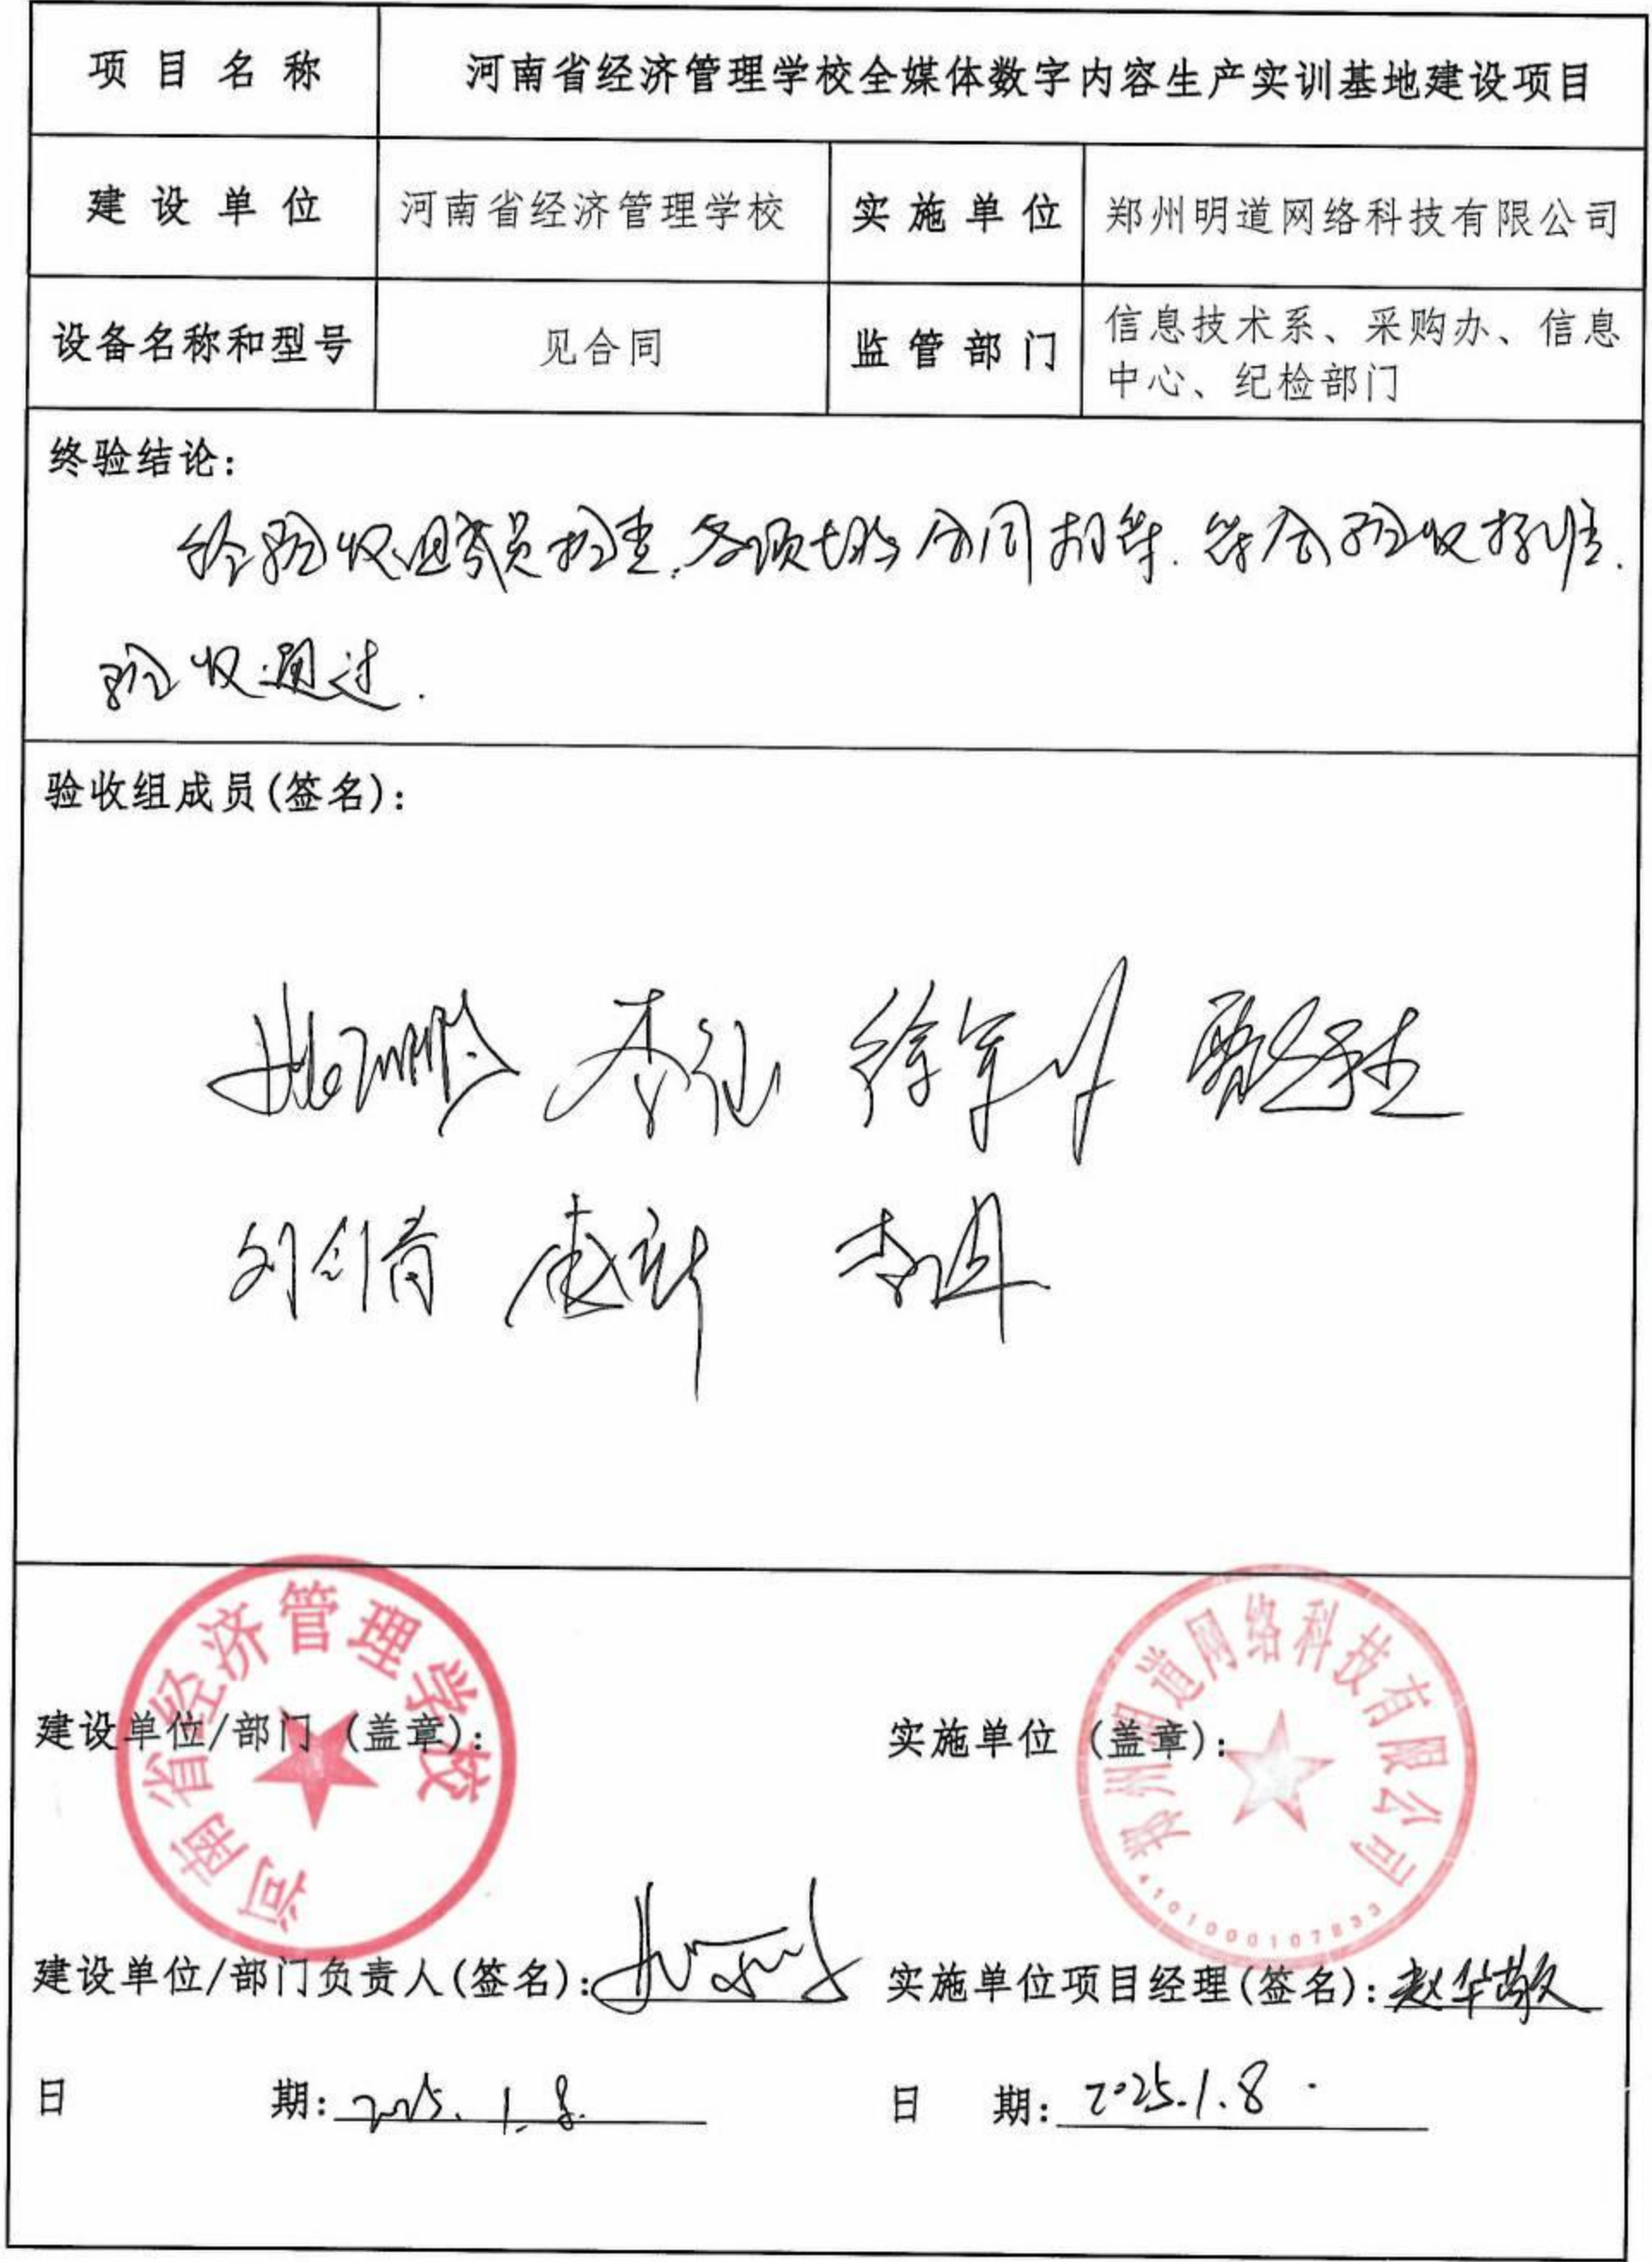 项目名称 河南省经济管理学校全媒体数字内容生产实训基地建设项目
建设单位 河南省经济管理学校 实施单位 郑州明道网络科技有限公司
设备名称和型号 见合同 监管部门 信息技术系、采购办、信息
中心、纪检部门
终验结论:
经验收组成员检查,各项 合同相符.符合验收标准.
验收通过.
验收组成员(签名):
徐军
河南省经济管理学校
郑州明道网络科技有限公司
建设单位/部门(盖章): 实施单位(盖章):
4101000107833
建设单位/部门负责人(签名): 实施单位项目经理(签名):赵华敬
日期:2025.1.8. 日期:2025.1.8.